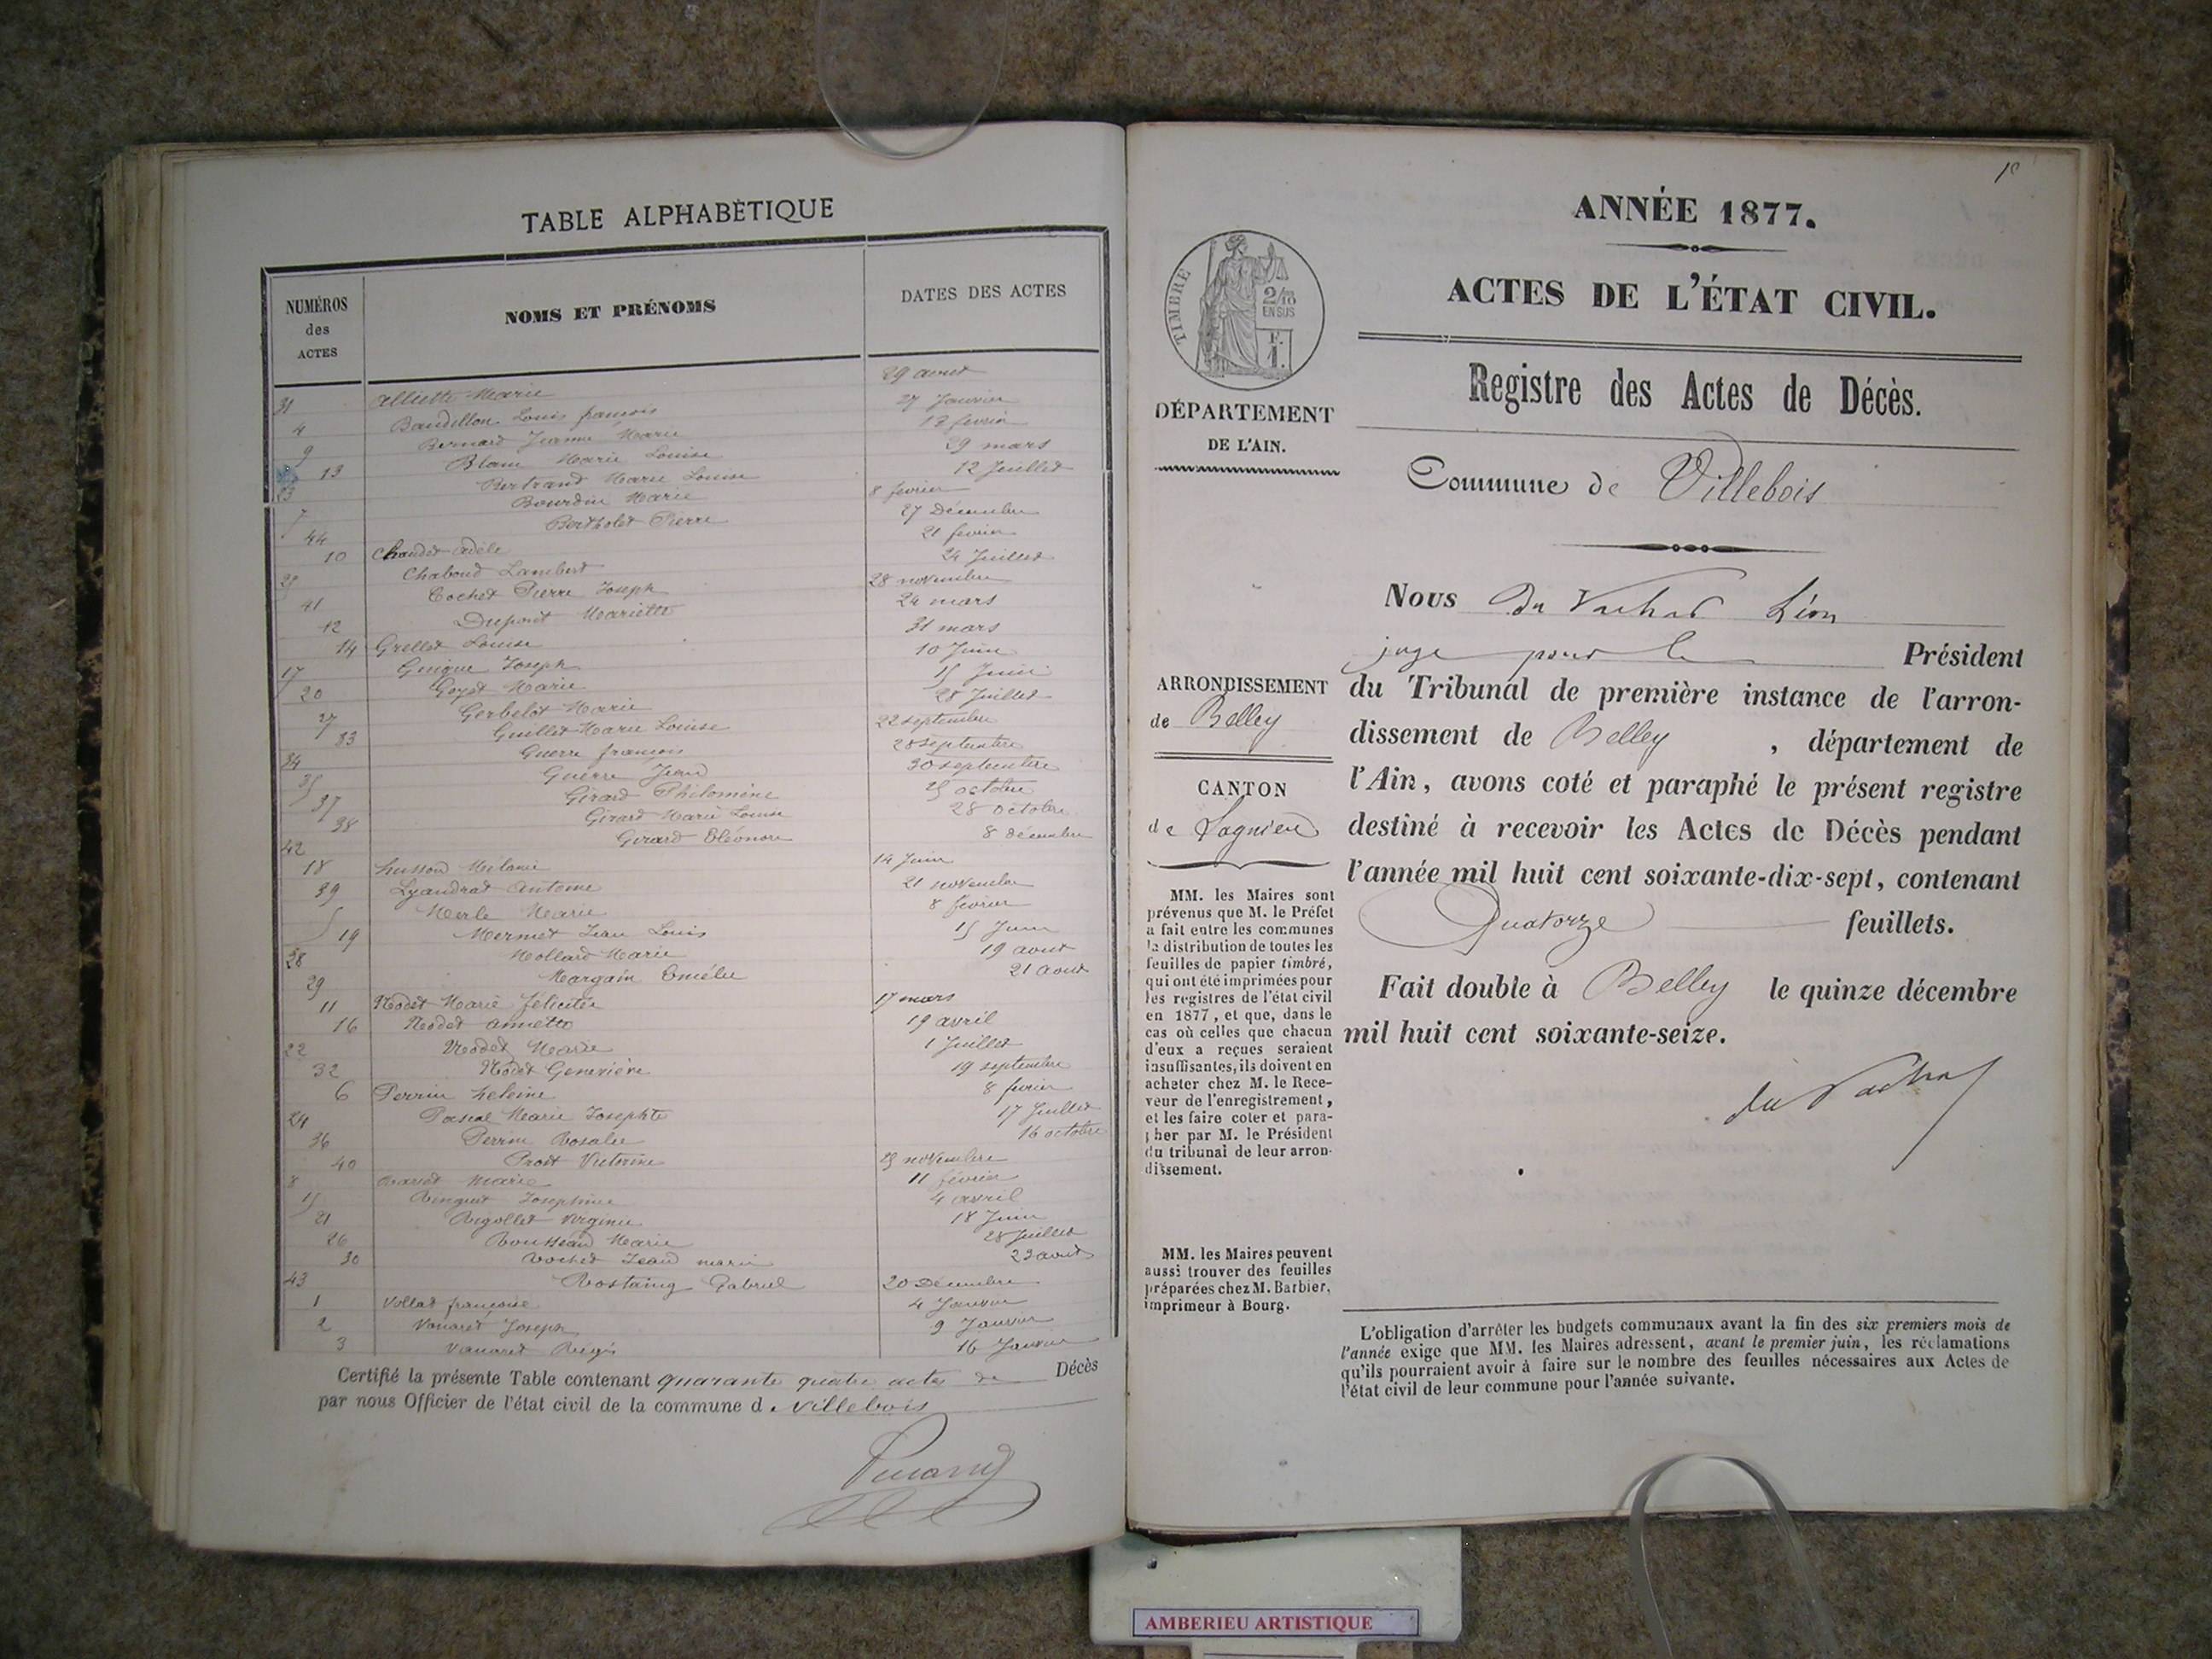 TABLE ALPHABÉTIQUE
NUMÉROS des ACTES
NOMS ET PRÉNOMS
DATES DES ACTES
31 Alliette Marie 29 aout
4 Baudillon Louis françois 27 Janvier
9 Bernard Jeanne Marie 13 fevrier
13 Blanc Marie Louise 29 mars
23 Bertrand Marie Louise 12 Juillet
7 Bourdin Marie 8 fevrier
44 Bertholet Pierre 27 Décembre
10 Chaudet Adèle 21 fevrier
25 Chaboud Lambert 24 Juillet
41 Cochet Pierre Joseph 28 novembre
12 Dupont Mariette 24 mars
14 Grellet Louise 31 mars
17 Guigue Joseph 10 Juin
20 Goyet Marie 15 Juin
27 Gerbelot Marie 28 Juillet
33 Guillet Marie Louise 22 septembre
34 Guerre françois 28 septembre
35 Guerre Jean 30 septembre
37 Girard Philomène 25 octobre
38 Girard Marie Louise 28 octobre
42 Girard Eléonore 8 décembre
18 husson Mélanie 14 Juin
39 Lyandrat Antoine 21 novembre
5 Merle Marie 8 fevrier
19 Mermet Jean Louis 15 Juin
28 Mollard Marie 19 aout
29 Margain Emélie 21 aout
11 Nodet Marie félicitée 17 mars
16 Nodet Annette 19 avril
22 Nodet Marie 1 Juillet
32 Nodet Geneviève 19 septembre
6 Perrin heleine 8 fevrier
24 Pascal Marie Josephte 17 Juillet
36 Perrin Rosalie 16 octobre
40 Prost Victorine 25 novembre
8 Ravet Marie 11 février
15 Renguet Josephine 4 avril
21 Rigollet Virginie 18 Juin
26 Rousseau Marie 28 Juillet
30 Rochet Jean marie 22 aout
43 Rostaing Gabriel 20 Décembre
1 Vollat françoise 4 Janvier
2 Vanaret Joseph 9 Janvier
3 Vanaret Régis 16 Janvier
Certifié la présente Table contenant quarante quatre actes de Décès
par nous Officier de l'état civil de la commune d. Villebois
ANNÉE 1877.
ACTES DE L'ÉTAT CIVIL.
Registre des Actes de Décès.
TIMBRE
2/10
EN SUS
F.
1.
DÉPARTEMENT
DE L'AIN.
Commune de Villebois
ARRONDISSEMENT
de Belley
CANTON
de Lagnieu
MM. les Maires sont
prévenus que M. le Préfet
a fait entre les communes
la distribution de toutes les
feuilles de papier timbré,
qui ont été imprimées pour
les registres de l'état civil
en 1877, et que, dans le
cas où celles que chacun
d'eux a reçues seraient
insuffisantes, ils doivent en
acheter chez M. le Rece-
veur de l'enregistrement,
et les faire coter et para-
pher par M. le Président
du tribunal de leur arron-
dissement.
MM. les Maires peuvent
aussi trouver des feuilles
préparées chez M. Barbier,
imprimeur à Bourg.
Nous du Vachat Léon
juge pour le Président
du Tribunal de première instance de l'arron-
dissement de Belley, département de
l'Ain, avons coté et paraphé le présent registre
destiné à recevoir les Actes de Décès pendant
l'année mil huit cent soixante-dix-sept, contenant
Quatorze feuillets.
Fait double à Belley le quinze décembre
mil huit cent soixante-seize.
du Vachat
L'obligation d'arrêter les budgets communaux avant la fin des six premiers mois de
l'année exige que MM. les Maires adressent, avant le premier juin, les réclamations
qu'ils pourraient avoir à faire sur le nombre des feuilles nécessaires aux Actes de
l'état civil de leur commune pour l'année suivante.
AMBERIEU ARTISTIQUE